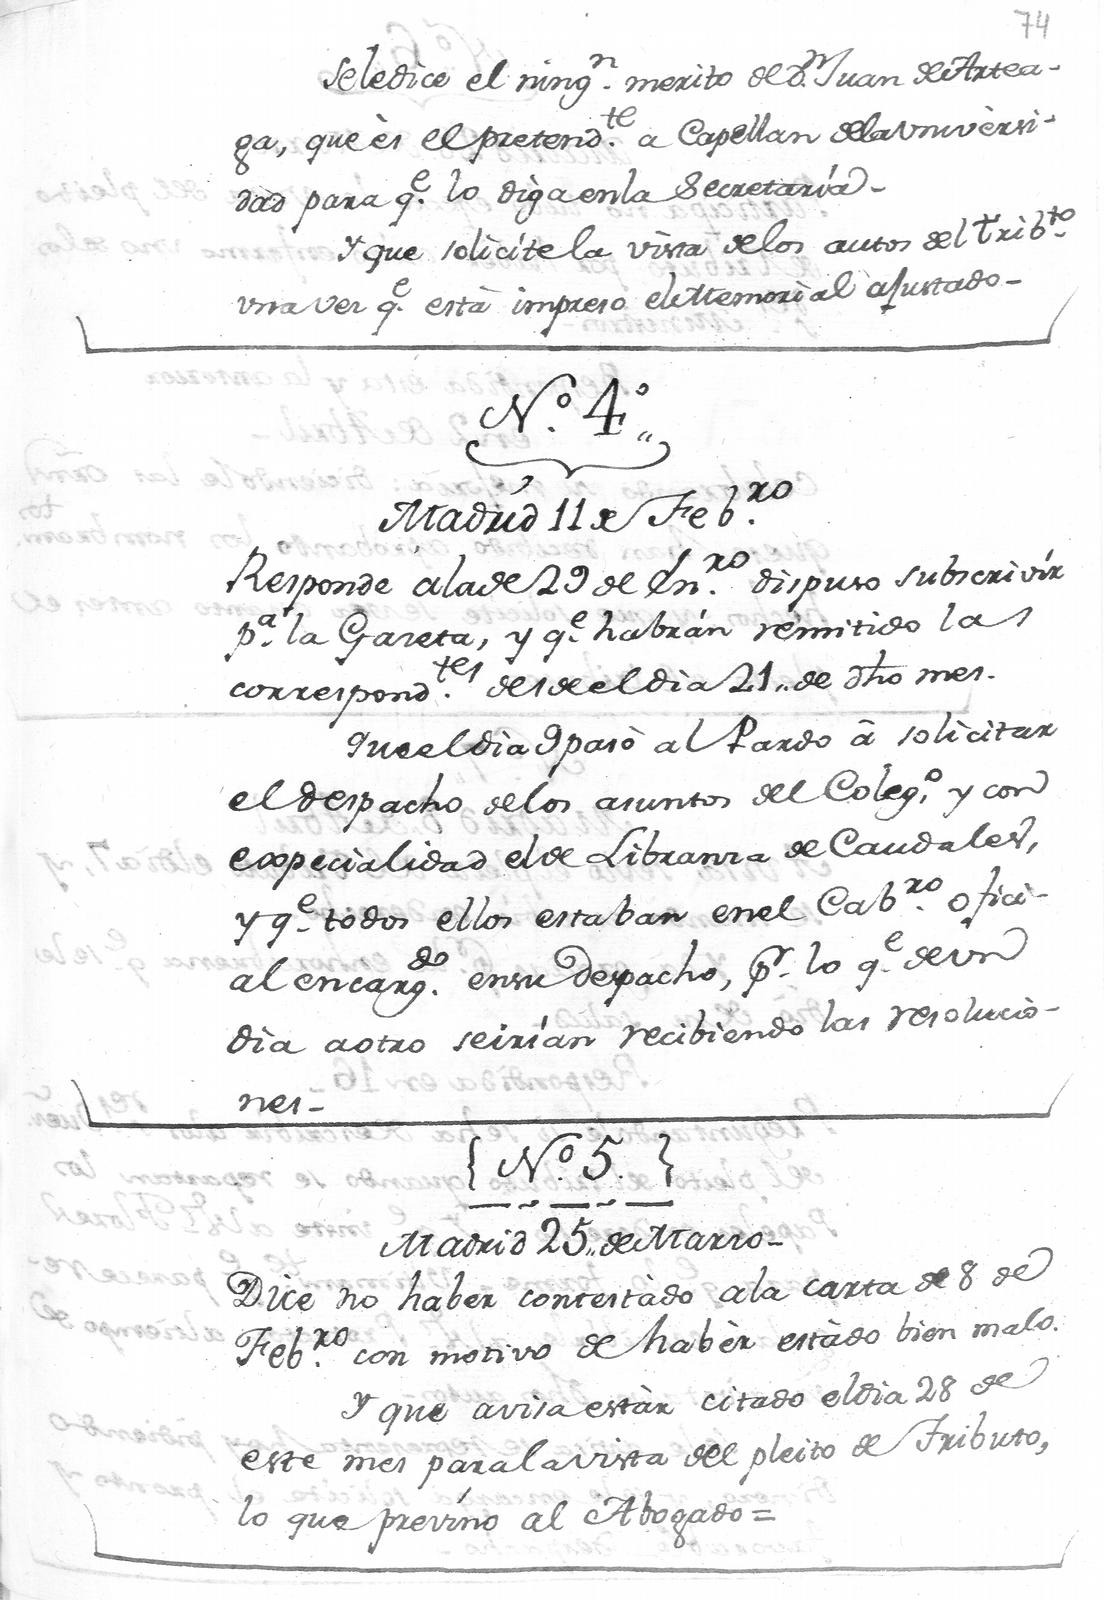 74
Se le dice el ning.n merito de D.n Juan de Artea-
ga, que ès el pretend.te a Capellan de la Vniversi-
dad para q.e lo diga en la Secretaría-
Y que solicite la vista de los autos del trib.to
vna vez q.e està impreso el Memorial ajustado-
N.o 4.o
Madrid 11 de Feb.ro
Responde á la de 29 de En.ro dispuso subscrivír
p.a la Gazeta, y q.e habrán remitido las
correspond.tes desde el dia 21,, de dho mes.
Que el dia 9 pasò al Pardo â solicitar
el despacho de los asuntos del Coleg.o y con
especialidad el de Libranza de Caudales,
y q.e todos ellos estaban en el Cab.ro ofici-
al encarg.do en su Despacho, p.r lo q.e de vn
dia a otro se irían recibiendo las resolucio-
nes-
{ N.o 5. }
Madrid 25,, de Marzo-
Dice no haber contestado a la carta de 8 de
Feb.ro con motivo de habèr estàdo bien malo.
Y que avisa estàr citado el dia 28 de
este mes para la vista del pleito de Tributo,
lo que previno al Abogado=